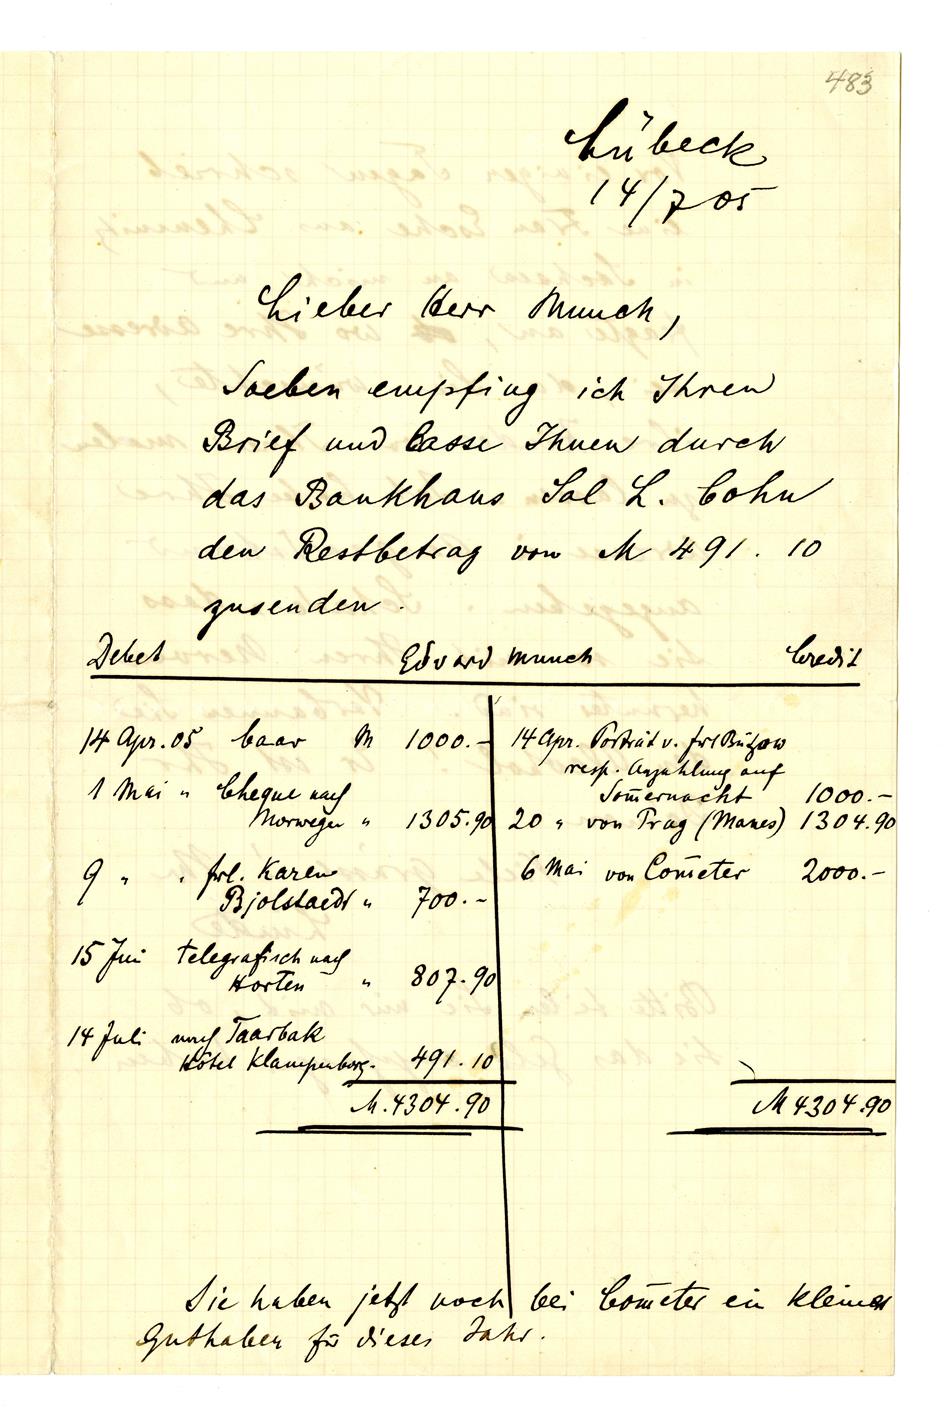 483
Lübeck
14/7 05
Lieber Herr Munch,
Soeben empfing ich Ihren
Brief und lasse Ihnen durch
das Bankhaus Sal L. Cohn
den Restbetrag von M 491. 10
zusenden.
Debet Edvard Munch Credit
14 Apr. 05 baar M 1000.-
1 Mai " Cheque nach
Norwegen " 1305.90
9 " " frl. Karen
Bjolstaedt " 700.-
15 Juni telegrafisch nach
Horten " 807.90
14 Juli nach Taarbæk
Hôtel Klampenborg. 491.10
M. 4304.90
14 Apr. Porträt v. frl Bützow
resp. Anzahlung auf
Som̄ernacht 1000.-
20 " von Prag (Manes) 1304.90
6 Mai von Com̄eter 2000.-
M 4304.90
Sie haben jetzt noch bei Com̄eter ein kleines
Guthaben für dieses Jahr.